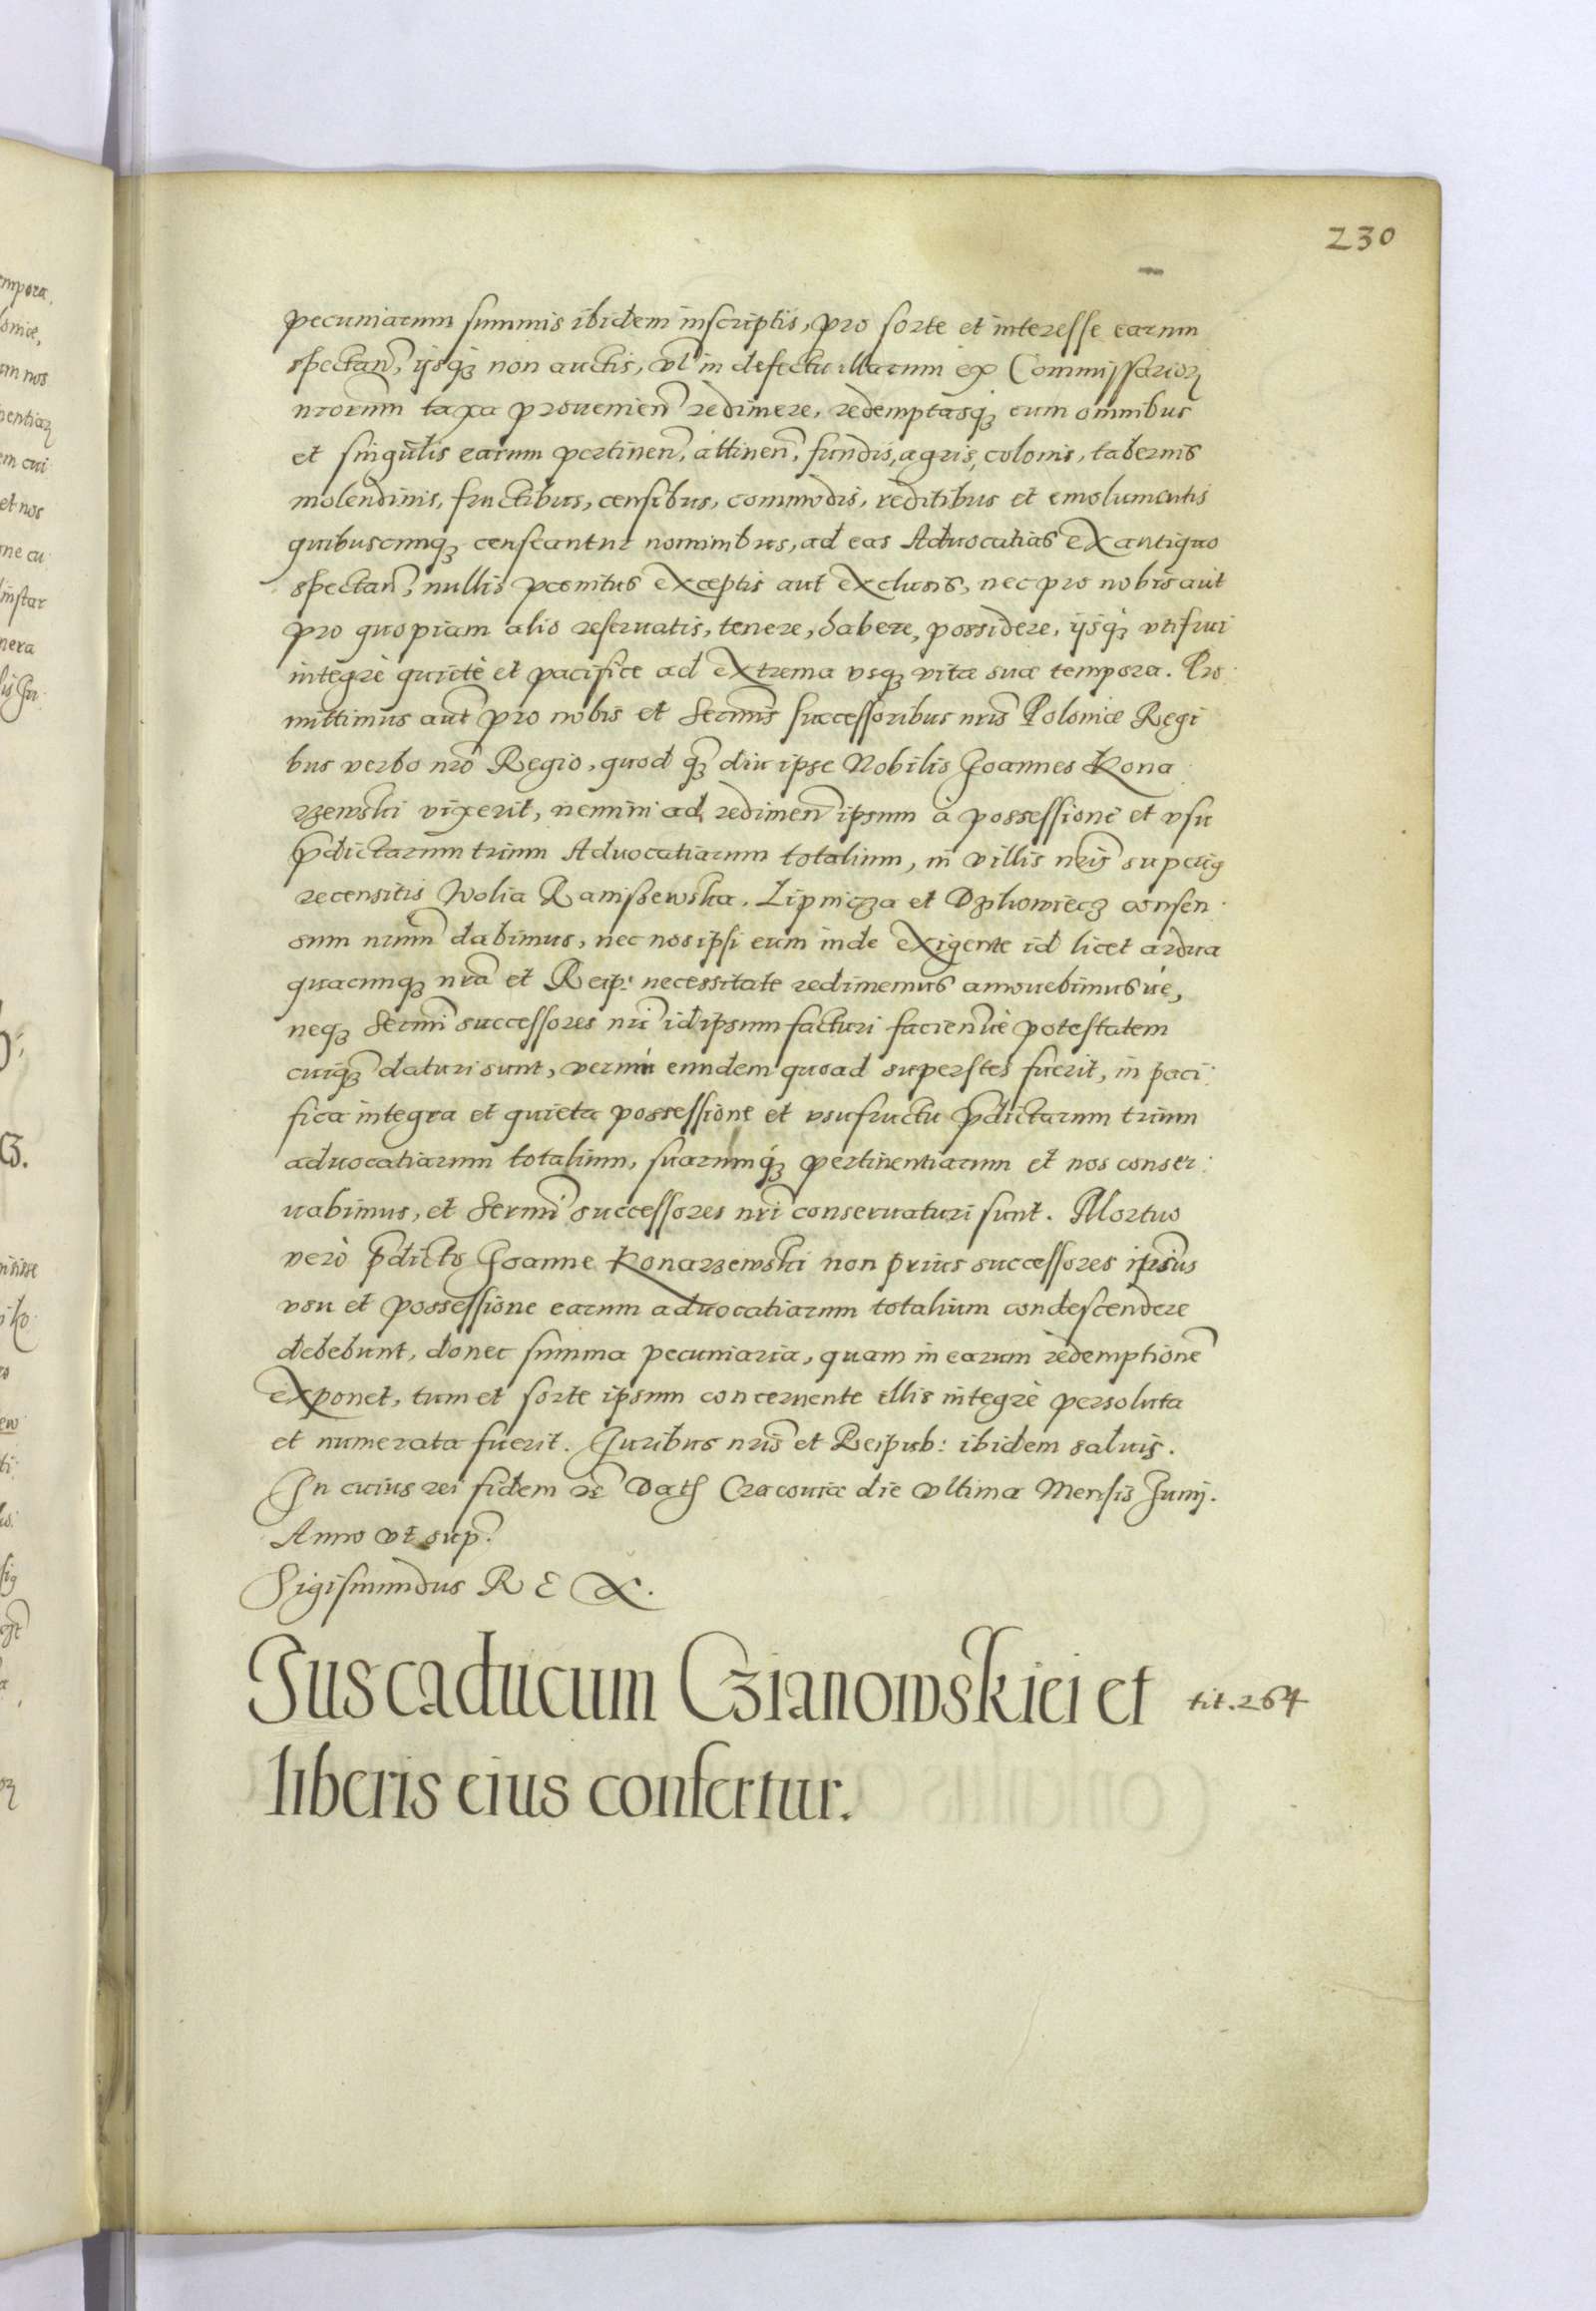 230
pecuniarum summis ibidem inscriptis, pro sorte et interesse earum
spectan̄, ijsq́ꝫ non auctis, vl̃ in defectu illarum ex Commissarioꝝ
nrorum taxa prouenien̄ redimere, redemptasq́ꝫ cum omnibus
et singulis earum pertinen̄, attinen̄, fundis, agris, colonis, tabernis
molendinis, fructibus, censibus, commodis, reditibus et emolumentis
quibuscunqꝫ censeantur nominibus, ad eas Aduocatias ex antiquo
spectan̄, nullis poenitus exceptis aut exclusis, nec pro nobis aut
pro quopiam alio reseruatis, tenere, habere, possidere, ijsq́ꝫ vtifrui
integrè quietè et pacifice ad extrema vsqꝫ vitæ suæ tempora. Pro
mittimus aut̃ pro nobis et Sermis̃ successoribus nris̃ Poloniæ Regi
bus verbo nrõ Regio, quod qꝫ̃ diu ipse Nobilis Joannes Kona
rzewski vixerit, nemini ad redimen̄ ipsum à possessione et vsu
p̃dictarum trium Aduocatiarum totalium, in villis nris̃ superiꝰ
recensitis Wolia Ranissewska, Lipnicza et Dzikowiecz consen
sum nrum̃ dabimus, nec nos ipsi eum inde exigente id licet ardua
quacunqꝫ nrã et Reip: necessitate redimemus amouebimusúe,
neqꝫ Sermĩ successores nrĩ idipsum facturi facien̄ue potestatem
cuiqꝫ̃ daturi sunt, verum eundem quoad superstes fuerit, in paci
fica integra et quieta possessione et vsufructu p̃dictarum trium
aduocatiarum totalium, suarumq́ꝫ pertinentiarum et nos conser
uabimus, et Sermĩ successores nrĩ conseruaturi sunt. Mortuo
verò p̃dicto Joanne Konarzewski non prius successores ipsius
vsu et possessione earum aduocatiarum totalium condescendere
debebunt, donec summa pecuniaria, quam in earum redemptionẽ
exponet, tum et sorte ipsum concernente illis integrè persoluta
et numerata fuerit. Juribus nris̃ et Reipub: ibidem saluis.
In cuius rei fidem &c̃ Datꝭ Cracouiæ die vltima Mensis Junij.
Anno vt sup̃.
Sigismundus REX.
Jus caducum Czianowskiei et tit. 264
liberis eius confertur.